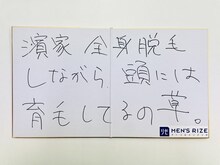 濱家 全身脱毛
しながら 頭には
育毛してるの草。
MEN'S RIZE